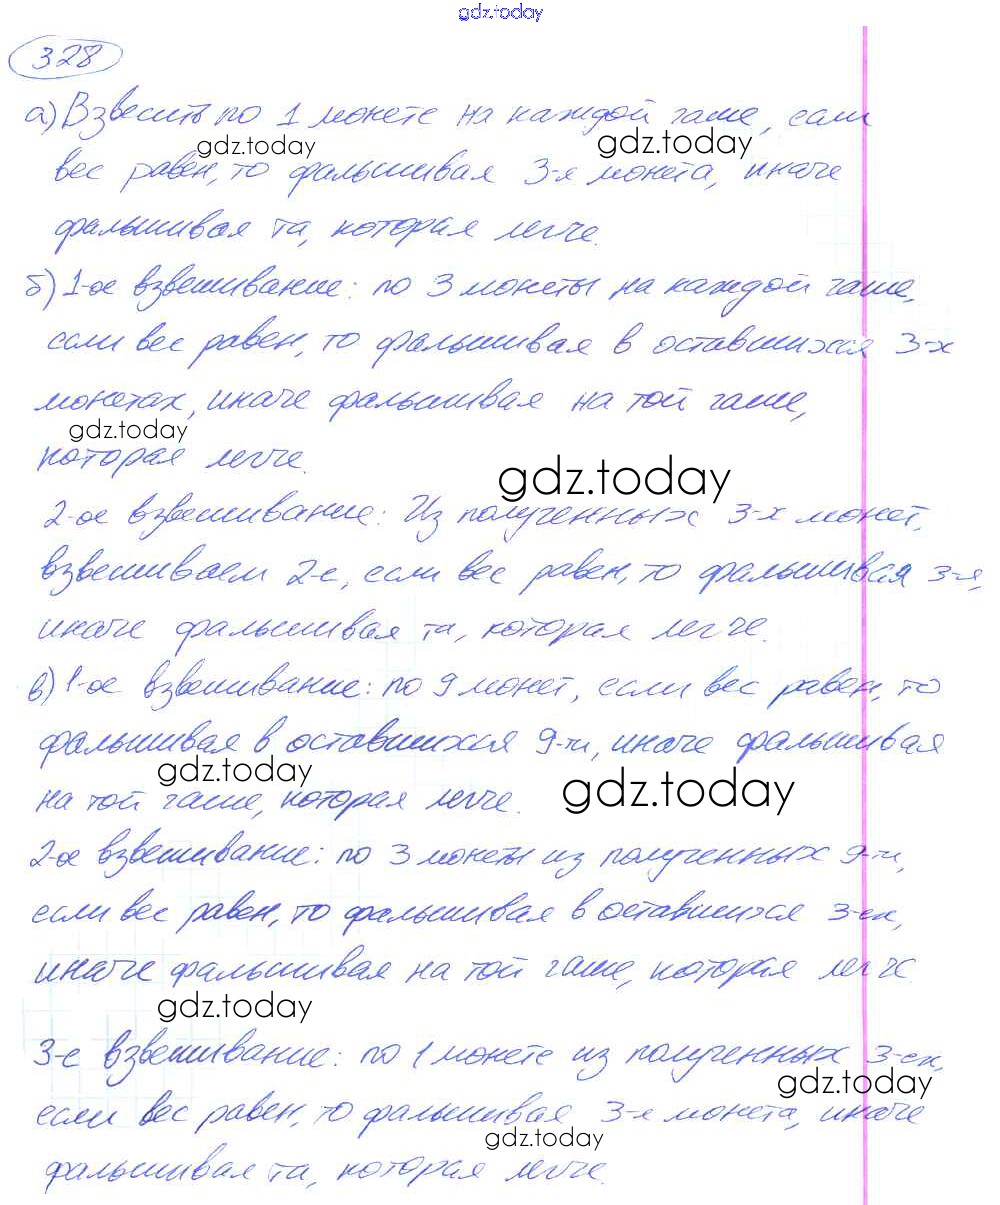 gdz.today
328
а) Взвесить по 1 монете на каждой чаше, если
gdz.today gdz.today
вес равен, то фальшивая 3-я монета, иначе
фальшивая та, которая легче.
б) 1-ое взвешивание: по 3 монеты на каждой чаше,
если вес равен, то фальшивая в оставшихся 3-х
монетах, иначе фальшивая на той чаше,
gdz.today
которая легче.
gdz.today
2-ое взвешивание: Из полученных 3-х монет,
взвешиваем 2-е, если вес равен, то фальшивая 3-я,
иначе фальшивая та, которая легче.
в) 1-ое взвешивание: по 9 монет, если вес равен, то
фальшивая в оставшихся 9-ти, иначе фальшивая
gdz.today gdz.today
на той чаше, которая легче.
2-ое взвешивание: по 3 монеты из полученных 9-ти,
если вес равен, то фальшивая в оставшихся 3-ех,
иначе фальшивая на той чаше, которая легче.
gdz.today
3-е взвешивание: по 1 монете из полученных 3-ех,
gdz.today
если вес равен, то фальшивая 3-я монета, иначе
gdz.today
фальшивая та, которая легче.